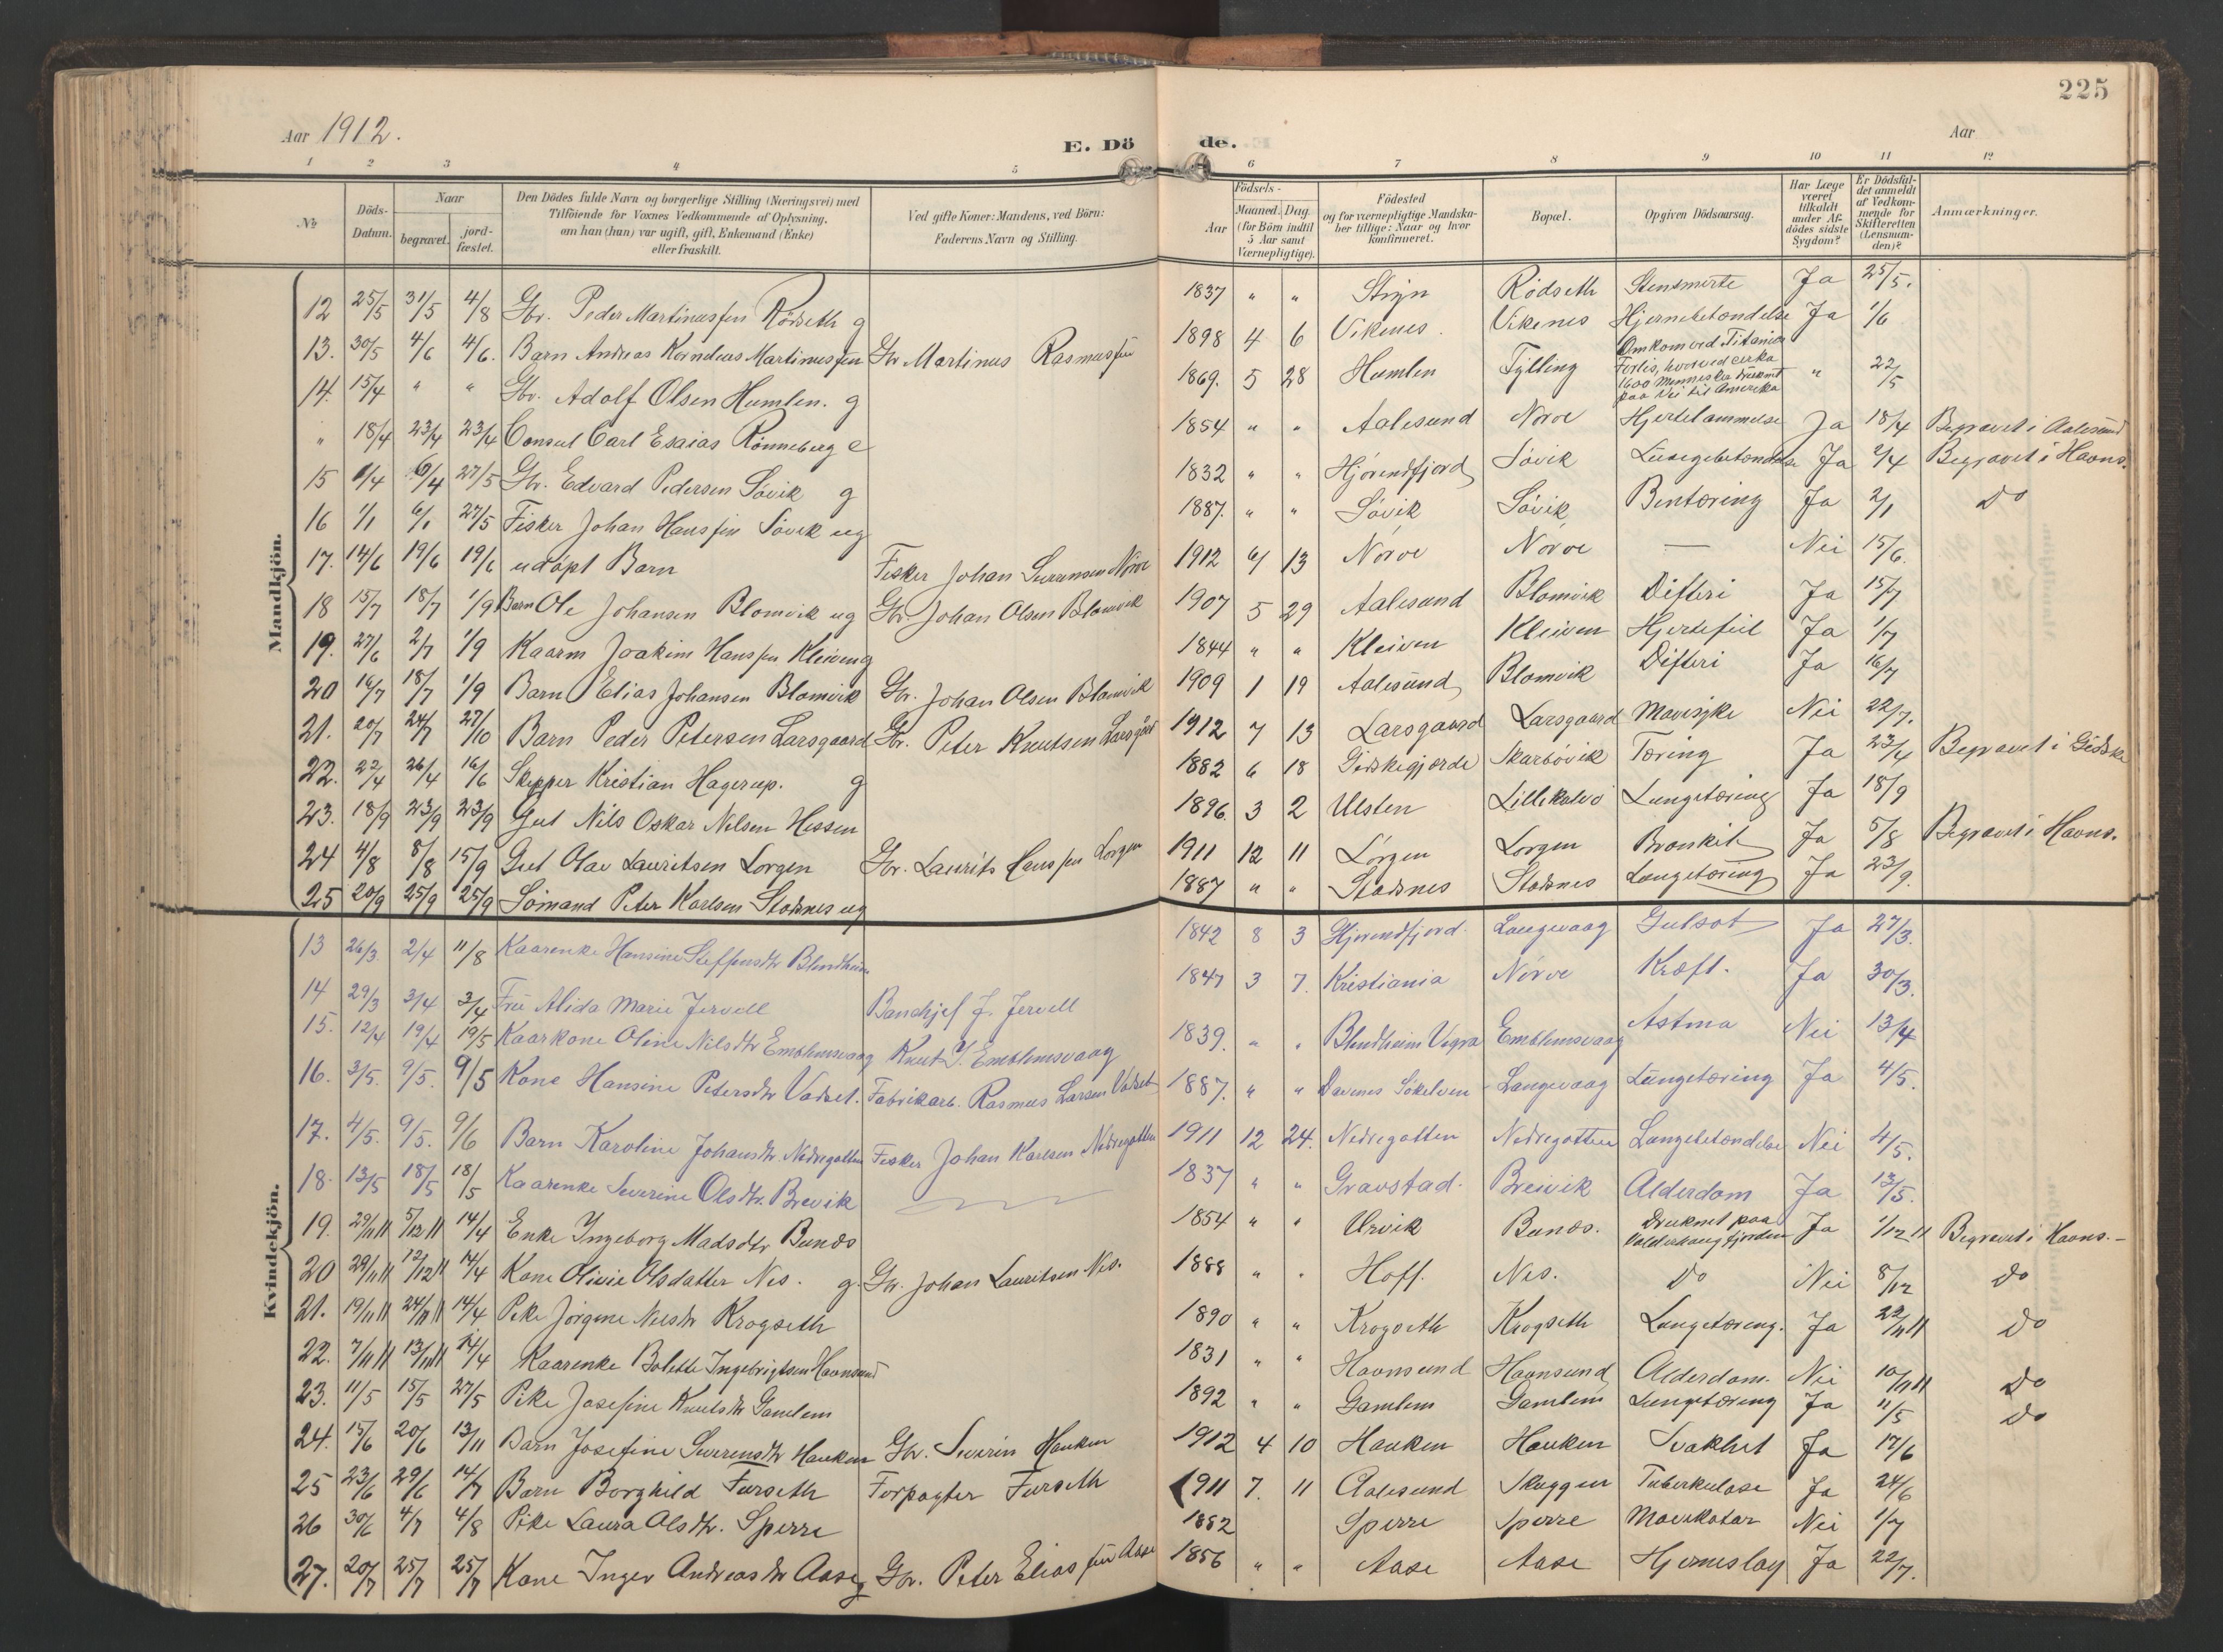 225
Aar 1912.
E. Dö de.
Aar
1 2 3 4 5 6 7 8 9 10 11 12
№
Döds-Datum.
Naar
begravet.
jord-fæstet.
Den Dödes fulde Navn og borgerlige Stilling (Næringsvei) med
Tilföiende for Voxnes Vedkommende af Oplysning,
om han (hun) var ugift, gift, Enkemand (Enke)
eller fraskilt.
Ved gifte Koner: Mandens, ved Börn:
Faderens Navn og Stilling.
Födsels-
Aar
Maaned. Dag
(for Börn indtil
5 Aar samt
Værnepligtige).
Födested
og for værnepligtige Mandska-
ber tillige: Naar og hvor
konfirmeret.
Bopæl.
Opgiven Dödsaarsag.
Har Læge
været
tilkaldt
under Af-
dödes sidste
Sygdom?
Er Dödsfal-
det anmeldt
af Vedkom-
mende for
Skifteretten
(Lensman-
den)?
Anmærkninger.
Mandkjön.
12 25/5 31/5 4/8 Gbr. Peder Martinussen Rödseth g 1837 " " Stryn Rödseth Stensmerte Ja 25/5.
13. 30/5 4/6 4/6. Barn Andreas Kornelius Martinussen Gbr Martinus Rasmussen 1898 4 6 Vikenes. Vikenes Hjernebetændelse Ja 1/6
14. 15/4 " " Gbr. Adolf Olsen Humlen. g 1869. 5 28 Humlen Tylling Omkom ved Titanics
Forlis, hvorved cirka
1600 Mennesker druknet
paa Vei til Amerika " 22/5
" 18/4 23/4 23/4 Consul Carl Esaias Rönneberg e 1854 " " Aalesund Nörve Hjertelammelse Ja 18/4 Begravet i Aalesund
15 1/4 6/4 27/5 Gbr. Edvard Pedersen Sövik g 1832 " " Hjörendfjord Sövik Lungebetændelse Ja 2/4 Begravet i Havns.
16 1/1 6/1 27/5 Fisker Johan Hanssen Sövik ug 1887. " " Sövik Sövik Bentæring Ja 2/1 Do
17. 14/6 19/6 19/6 udöpt Barn Fisker Johan Sevrinsen Nörve 1912 6 13 Nörve Nörve — Nei 15/6.
18 15/7 18/7 1/9 Barn Ole Johansen Blomvik ug Gbr. Johan Olsen Blomvik 1907 5 29 Aalesund Blomvik Difteri Ja 15/7
19. 27/6 2/7 1/9 Kaarm Joakim Hanssen Kleiven g 1844 " " Kleiven Kleiven Hjertefeil Ja 1/7
20 16/7 18/7 1/9 Barn Elias Johansen Blomvik Gbr. Johan Olsen Blomvik 1909 1 19 Aalesund Blomvik Difteri Ja 16/7
21. 20/7 24/7 27/10 Barn Peder Petersen Larsgaard Gbr. Peter Knutsen Larsgård 1912 7 13 Larsgaard Larsgaard Mavesyke Nei 22/7.
22. 22/4 26/4 16/6 Skipper Kristian Hagerup. g 1882 6 18 Giskegjerde Skarbövik Tæring Ja 23/4 Begravet i Giske
23. 18/9 23/9 23/9 Gut Nils Oskar Nilsen Hessen 1896. 3 2 Ulsten Lillekalvö Lungetæring Ja 18/9
24 4/8 8/8 15/9 Gut Olav Lauritsen Lorgen Gbr. Laurits Hanssen Lorgen 1911 12 11 Lorgen Lorgen Bronkit Ja 5/8 Begravet i Havns.
25 20/9 25/9 25/9 Sömand Peter Karlsen Stadsnes ug 1887 " " Stadsnes Stadsnes Lungetæring Ja 23/9.
Kvindekjön.
13 26/3. 2/4 11/8 Kaarenke Hansine Steffensdtr Blindheim 1842 8 3 Hjörendfjord Langevaag Gulsot Ja 27/3.
14 29/3 3/4 3/4 Fru Alida Marie Jervell Banchjef J. Jervell 1847 3 7. Kristiania Nörve Kræft. Ja 30/3.
15. 12/4 19/4 19/5 Kaarkone Oline Nilsdtr Emblemsvaag Knut P. Emblemsvaag 1839. " " Blindheim Vigra Emblemsvaag Astma Nei 13/4
16. 3/5. 9/5. 9/5 Kone Hansine Petersdtr Vadset. Fabrikarb. Rasmus Larsen Vadset 1887. " " Davenes Sökelven Langevaag Lungetæring Ja 4/5.
17. 4/5. 9/5. 9/6 Barn Karoline Johansdtr. Nedregotten Fisker Johan Karlsen Nedregotten 1911 12 24. Nedregotten Nedregotten Lungebetændelse Nei 4/5.
18. 13/5 18/5 18/5 Kaarenke Severine Olsdtr. Brevik 1837 " " Gravstad. Breivik Alderdom Ja 13/5.
19. 29/11 11 5/12 11 14/4 Enke Ingeborg Madsdtr Bunæs 1854 " " Urvik Bunæs. Druknet paa
Valderhaugfjorden Ja 1/12 11 Begravet i Havns.-
20 29/11 11 12/12 11 14/4 Kone Olivie Olsdatter Nes. g. Gbr. Johan Lauritsen Nes. 1888 " " Hoff. Nes. Do Nei 8/12 Do
21. 19/11 11 24/11 11 14/4 Pike Jörgine Nilsdtr Krogseth 1890 " " Krogseth Krogseth Lungetæring. Ja 22/11 11 Do
22. 7/11 11 13/11 11 14/4 Kaarenke Bolette Ingebrigtsen Havnsund 1831 " " Havnsund Havnsund Alderdom. Nei 10/11 11 Do
23. 11/5 15/5 27/5 Pike Josefine Knutsdtr Gamlem 1892 " " Gamlem Gamlem Lungetæring Ja 11/5 Do
24. 15/6 20/6 13/11 Barn Josefine Sverensdtr Hauken Gbr. Severin Hauken 1912 4 10 Hauken Hauken Svakhet Ja 17/6
25 23/6 29/6 14/7 Barn Borghild Furseth Forpagter Furseth 1911 7. 11 Aalesund Skuggen Tuberkulose Ja 24/6
26 30/6 4/7 4/8 Pike Laura Olsdtr. Sperre 1882 Sperre Sperre Mavekatar Nei 1/7
27. 20/7 25/7 25/7 Kone Inger Andreasdtr Aase g Gbr. Peter Eliassen Aase 1856 " " Aase Aase Hjerneslag Ja 22/7.